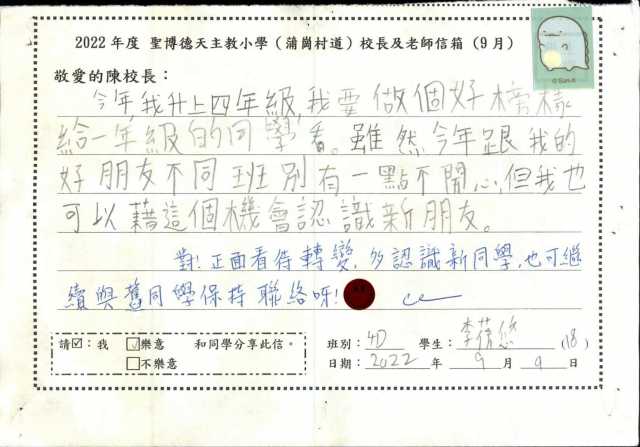 2022 年度 聖博德天主教小學（蒲崗村道）校長及老師信箱（9 月）
敬愛的陳校長：
今年,我升上四年級,我要做個好榜樣
給一年級的同學看。雖然今年跟我的
好朋友不同班別有一點不開心,但我也
可以藉這個機會認識新朋友。
對!正面看待轉變,多認識新同學,也可繼
續與舊同學保持聯絡呀!
請☑：我 ☑樂意 和同學分享此信。
□不樂意
班別： 4D 學生： 李蒨悠 (18)
日期： 2022 年 9 月 9 日